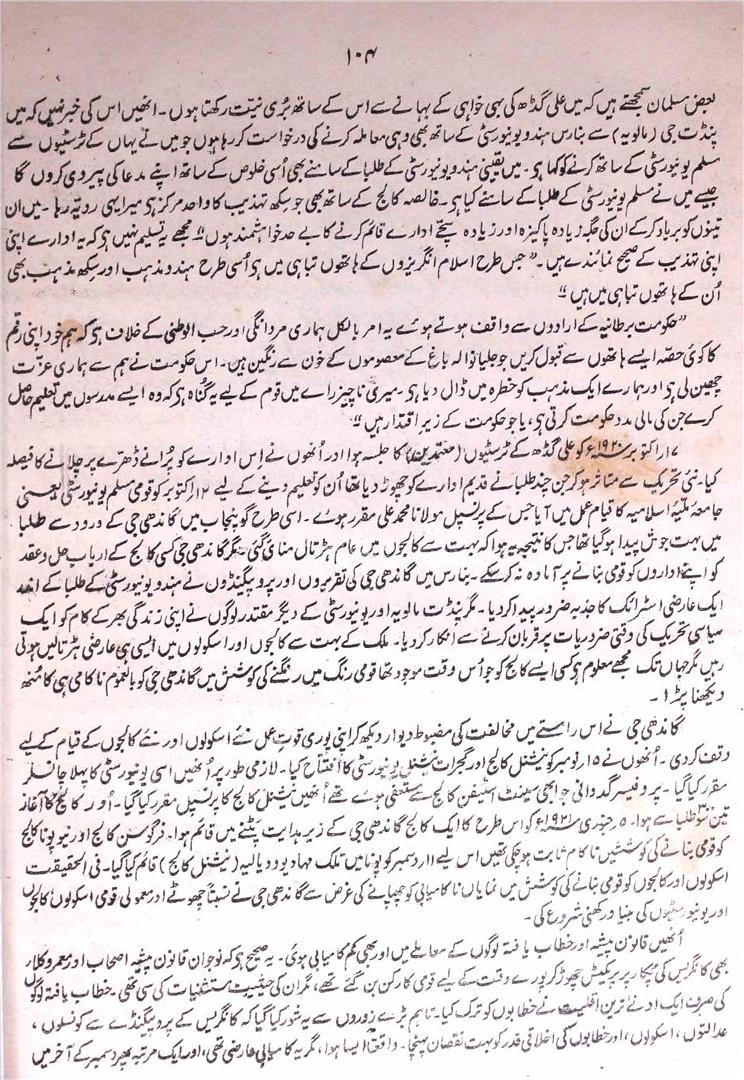 ۱۰۴
بعض مسلمان سمجھتے ہیں کہ میں علی گڈھ کی بہی خواہی کے بہانے سے اس کے ساتھ بُری نیت رکھتا ہوں۔ انھیں اس کی خبر نہیں کہ میں
پنڈت جی (مالویہ) سے بنارس ہندو یونیورسٹی کے ساتھ بھی وہی معاملہ کرنے کی درخواست کر رہا ہوں جو میں نے یہاں کے ٹرسٹیوں سے
مسلم یونیورسٹی کے ساتھ کرنے کو کہا ہو۔ میں یقینی ہندو یونیورسٹی کے طلبا کے سامنے بھی اُسی خلوص کے ساتھ اپنے مدعا کی پیروی کروں گا
جیسے میں نے مسلم یونیورسٹی کے طلبا کے سامنے کیا ہو۔ خالصہ کالج کے ساتھ بھی جو سکھ تہذیب کا واحد مرکز ہو میرا یہی رویّہ رہا۔ میں ان
تینوں کو برباد کر کے ان کی جگہ زیادہ پاکیزہ اور زیادہ سچّے ادارے قائم کرنے کا بے حد خواہشمند ہوں" مجھے یہ تسلیم نہیں ہو کہ یہ ادارے اپنی
اپنی تہذیب کے صحیح نمائندے ہیں۔ "جس طرح اسلام انگریزوں کے ہاتھوں تباہی میں ہو اُسی طرح ہندو مذہب اور سکھ مذہب بھی
اُن کے ہاتھوں تباہی میں ہیں"
"حکومت برطانیہ کے ارادوں سے واقف ہوتے ہوئے یہ امر بالکل ہماری مردانگی اور حب الوطنی کے خلاف ہو کہ ہم خود اپنی رقم
کا کوئی حصّہ ایسے ہاتھوں سے قبول کریں جو جلیانوالہ باغ کے معصوموں کے خون سے رنگین ہیں۔ اس حکومت نے ہم سے ہماری عزّت
چھین لی ہو اور ہمارے ایک مذہب کو خطرہ میں ڈال دیا ہو۔ میری ناچیز رائے میں قوم کے لیے یہ گناہ ہو کہ وہ ایسے مدرسوں میں تعلیم حاصل
کرے جن کی مالی مدد حکومت کرتی ہو، یا جو حکومت کے زیرِ اقتدار ہیں"
۱۷؍اکتوبر ۱۹۲۰ء کو علی گڈھ کے ٹرسٹیوں (معتمدین) کا جلسہ ہوا اور اُنھوں نے اس ادارے کو پُرانے ڈھرّے پر چلانے کا فیصلہ
کیا۔ نئی تحریک سے متاثر ہو کر جن چند طلبا نے قدیم ادارے کو چھوڑ دیا تھا اُن کو تعلیم دینے کے لیے اکتوبر کو قومی مسلم یونیورسٹی یعنی
جامعہ ملّیہ اسلامیہ کا قیام عمل میں آیا جس کے پرنسپل مولانا محمد علی مقرر ہوئے۔ اسی طرح گو پنجاب میں گاندھی جی کے ورود سے طلبا
میں بہت جوش پیدا ہو گیا تھا جس کا نتیجہ یہ ہوا کہ بہت سے کالجوں میں عام ہڑتال منائی گئی، مگر گاندھی جی کسی کالج کے ارباب حل و عقد
کو اپنے اداروں کو قومی بنانے پر آمادہ نہ کر سکے۔ بنارس میں گاندھی جی کی تقریروں اور پروپیگنڈوں نے ہندو یونیورسٹی کے طلبا کے اندر
ایک عارضی اسٹرائک کا جذبہ ضرور پیدا کر دیا۔ مگر پنڈت مالویہ اور یونیورسٹی کے دیگر مقتدر لوگوں نے اپنی زندگی بھر کے کام کو ایک
سیاسی تحریک کی وقتی ضروریات پر قربان کرنے سے انکار کر دیا۔ ملک کے بہت سے کالجوں اور اسکولوں میں ایسی ہی عارضی ہڑتالیں ہوتی
رہیں مگر جہاں تک مجھے معلوم ہو کسی ایسے کالج کو جو اُس وقت موجود تھا قومی رنگ میں رنگنے کی کوشش میں گاندھی جی کو بالعموم ناکامی ہی کا مُنھ
دیکھنا پڑا۔
گاندھی جی نے اس راستے میں مخالفت کی مضبوط دیوار دیکھ کر اپنی پوری قوتِ عمل نئے اسکولوں اور نئے کالجوں کے قیام کے لیے
وقف کر دی۔ اُنھوں نے ۱۵؍نومبر کو نیشنل کالج اور گجرات نیشنل یونیورسٹی کا افتتاح کیا۔ لازمی طور پر اُنھیں اسی یونیورسٹی کا پہلا چانسلر
مقرر کیا گیا۔ پروفیسر گدوانی جو ابھی سینٹ اسٹیفن کالج سے مستعفی ہوئے تھے اُنھیں نیشنل کالج کا پرنسپل مقرر کیا گیا۔ اور کالج کا آغاز
تین سو طلبا سے ہوا۔ ۵؍جنوری ۱۹۲۱ء کو اس طرح کا ایک کالج گاندھی جی کے زیرِ ہدایت پٹنے میں قائم ہوا۔ فرگوسن کالج اور نیو پونا کالج
کو قومی بنانے کی کوششیں ناکام ثابت ہو چکی تھیں اس لیے ۱۱؍دسمبر کو پونا میں تلک مہا ودیالیہ (نیشنل کالج) قائم کیا گیا۔ فی الحقیقت
اسکولوں اور کالجوں کو قومی بنانے کی کوشش میں نمایاں ناکامیابی کو چھپانے کی غرض سے گاندھی جی نے نسبتاً چھوٹے اور معمولی قومی اسکولوں کالجوں
اور یونیورسٹیوں کی بنیاد رکھنی شروع کی۔
اُنھیں قانون پیشہ اور خطاب یافتہ لوگوں کے معاملے میں اور بھی کم کامیابی ہوئی۔ یہ صحیح ہو کہ نوجوان قانون پیشہ اصحاب اور معمر وکلاء
بھی کانگریس کی پکار پر پریکٹس چھوڑ کر پورے وقت کے لیے قومی کارکن بن گئے تھے، مگر ان کی حیثیت مستثنیات کی سی تھی۔ خطاب یافتہ لوگوں
کی صرف ایک ادنےٰ ترین اقلیت نے خطابوں کو ترک کیا۔ تاہم بڑے زوروں سے یہ شور کیا گیا کہ کانگریس کے پروپیگنڈے سے کونسلوں،
عدالتوں، اسکولوں، اور خطابوں کی اخلاقی قدر کو بہت نقصان پہنچا۔ واقعتاً ایسا ہوا، مگر یہ کامیابی عارضی تھی، اور ایک مرتبہ پھر دسمبر کے آخر میں